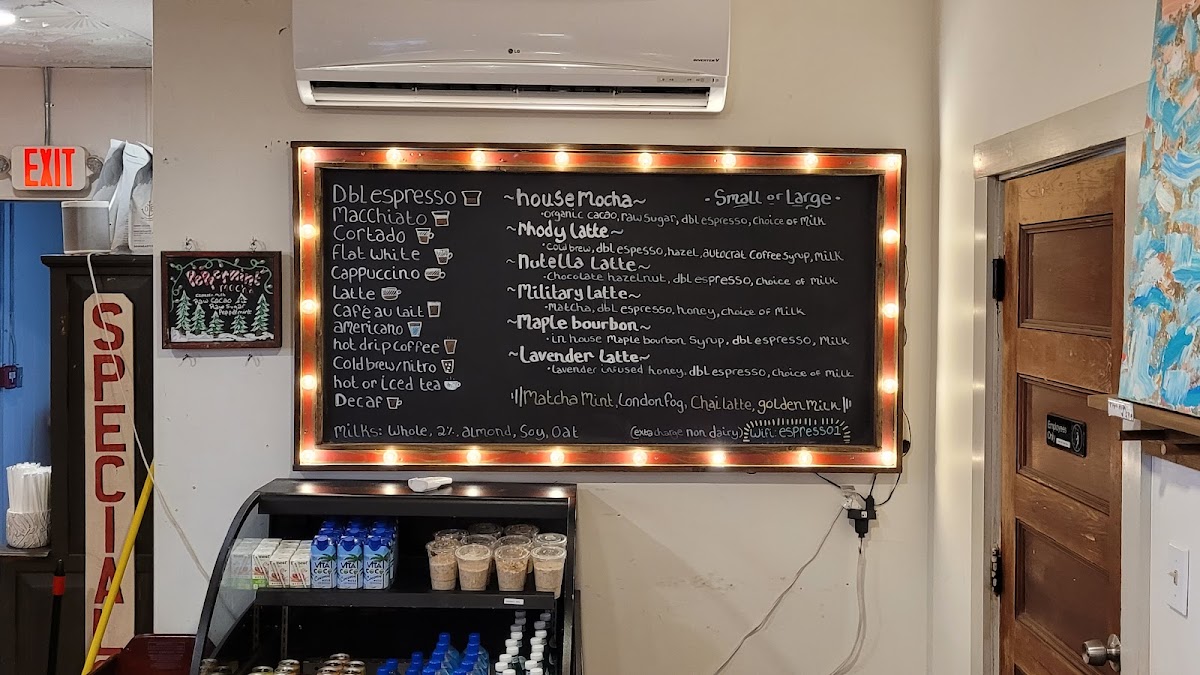 LG
INVERTER V
EXIT
Peppermint
Mocha
Raw Cacao
Raw Sugar
Peppermint
SPECIAL
Dbl espresso
Macchiato
Cortado
flat white
Cappuccino
Latte
Café au lait
americano
hot drip coffee
Cold brew/nitro
hot or iced tea
Decaf
~house Mocha~
- Small or Large -
• organic cacao, raw sugar, dbl espresso, choice of Milk
~Rhody Latte~
• Cold brew, dbl espesso, hazel, autocrat Coffee syrup, milk
~Nutella Latte~
• Chocolate hazelnut, dbl espresso, choice of milk
~Military latte~
• Matcha, dbl espresso, honey, choice of Milk
~Maple bourbon~
• in house Maple bourbon Syrup, dbl espresso, Milk
~Lavender Latte~
• lavender infused honey, dbl espresso, choice of Milk
Matcha Mint, London fog, Chai latte, golden milk
Milks: Whole, 2%, almond, Soy, Oat
(extra charge non dairy)
Wifi: espresso1
Employees
Only
VITA
COCO
VITA
COCO
VITA
COCO